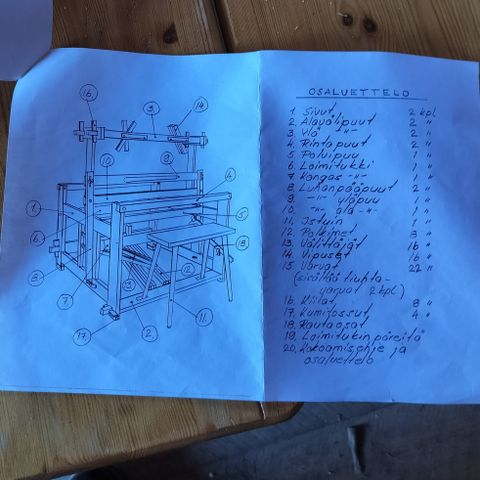 OSALUETTELO
1. Sivut 2 kpl
2. Alavälipuut 2 "
3. Ylä -"- 2 "
4. Rintapuut 2 "
5. Polvipuu 1 "
6. Loimitukki 1 "
7. Kangas -"- 1 "
8. Luhanpääpuut 2 "
9. -"- yläpuu 1 "
10. -"- ala -"- 1 "
11. Istuin 1 "
12. Polkimet 8 "
13. Välittäjät 16 "
14. Vipuset 16 "
15. Varvat 22 "
(sisältää tiuhta-
varvat 2 kpl)
16. Kiilat 8 "
17. Kumitossut 4 "
18. Rautaosat
19. Loimitukin päreitä
20. Kokoamisohje ja
osaluettelo
16
14
3
8
10
4
1
5
6
18
12
13
3
7
11
17
2